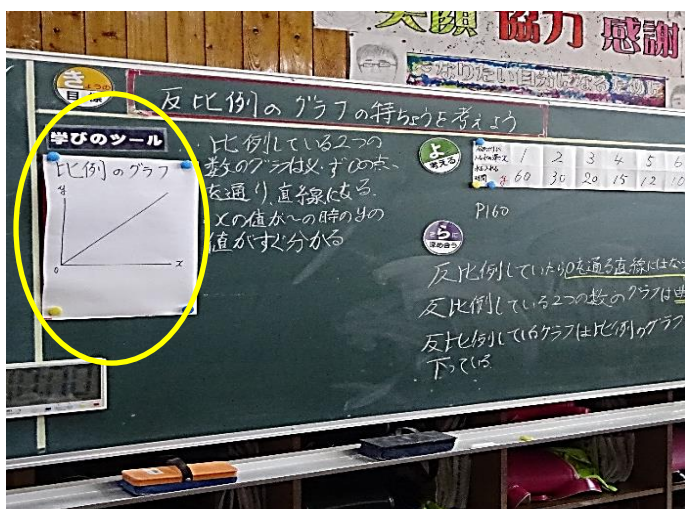 笑顔 協力 感謝
き
目標
反比例のグラフの特ちょうを考えよう
学びのツール
比例のグラフ
y
0
x
・比例している2つの
数のグラフは必ず0の点
を通り、直線になる。
・xの値が〜の時のyの
値がすぐ分かる
よ
考える
1 2 3 4 5 6
60 30 20 15 12 10
P160
さらに
深め合う
反比例していたら0を通る直線にはな
反比例している2つの数のグラフは曲
反比例しているグラフは比例のグラフ
下っている